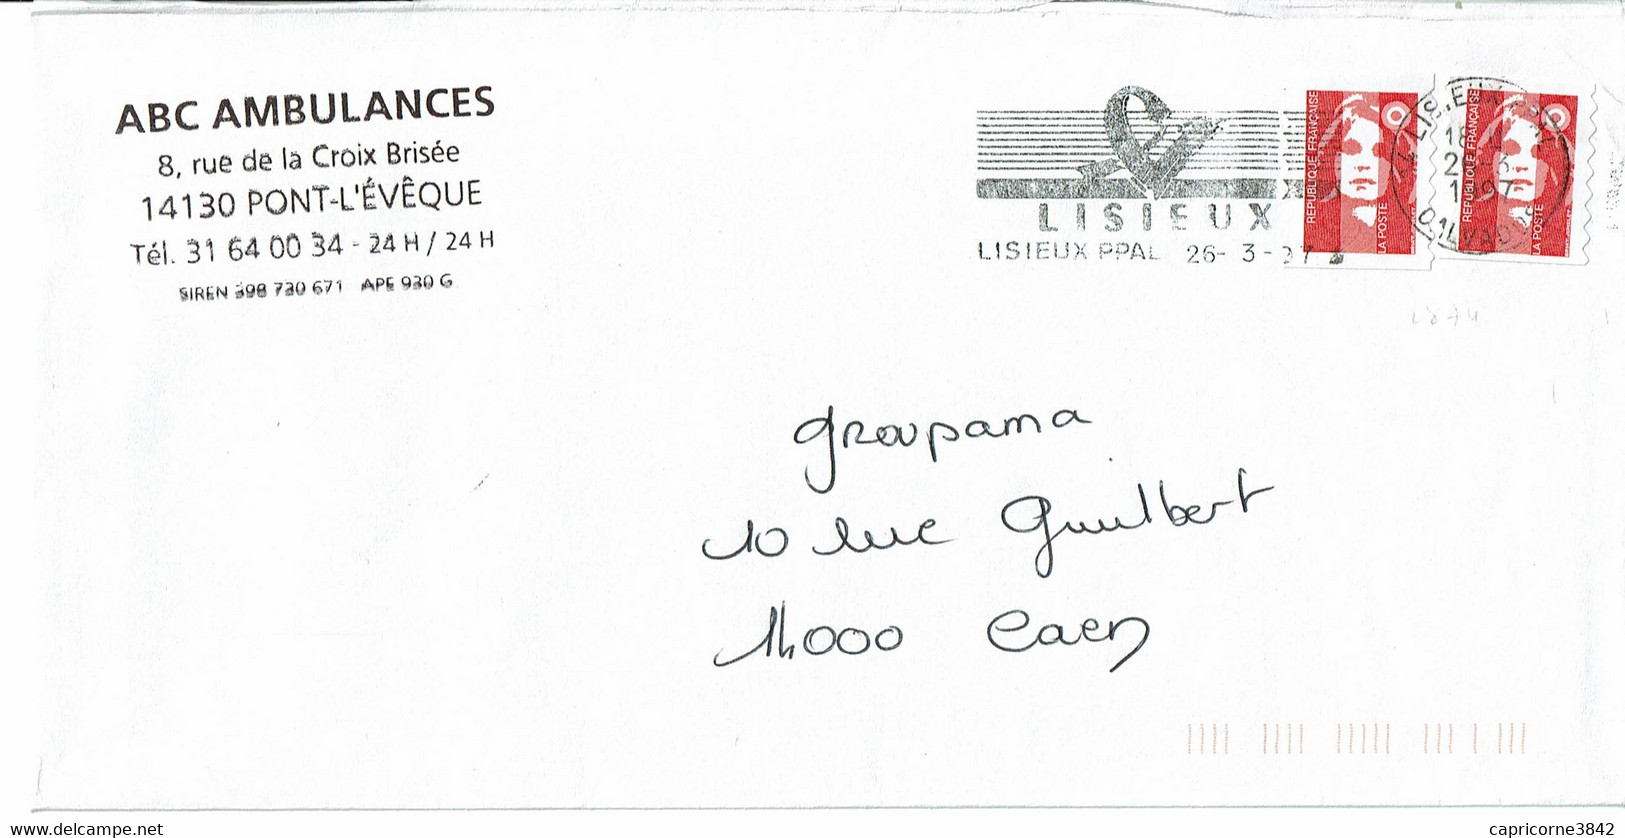 ABC AMBULANCES
8, rue de la Croix Brisée
14130 PONT-L'ÉVÊQUE
Tél. 31 64 00 34 - 24 H / 24 H
SIREN 398 730 671 APE 930 G
LISIEUX
LISIEUX PPAL 26- 3 - 97
REPUBLIQUE FRANÇAISE
LA POSTE
REPUBLIQUE FRANÇAISE
LA POSTE
14 LISIEUX PPAL
CALVADOS
Groupama
10 rue Guilbert
14000 Caen
delcampe.net
capricorne3842